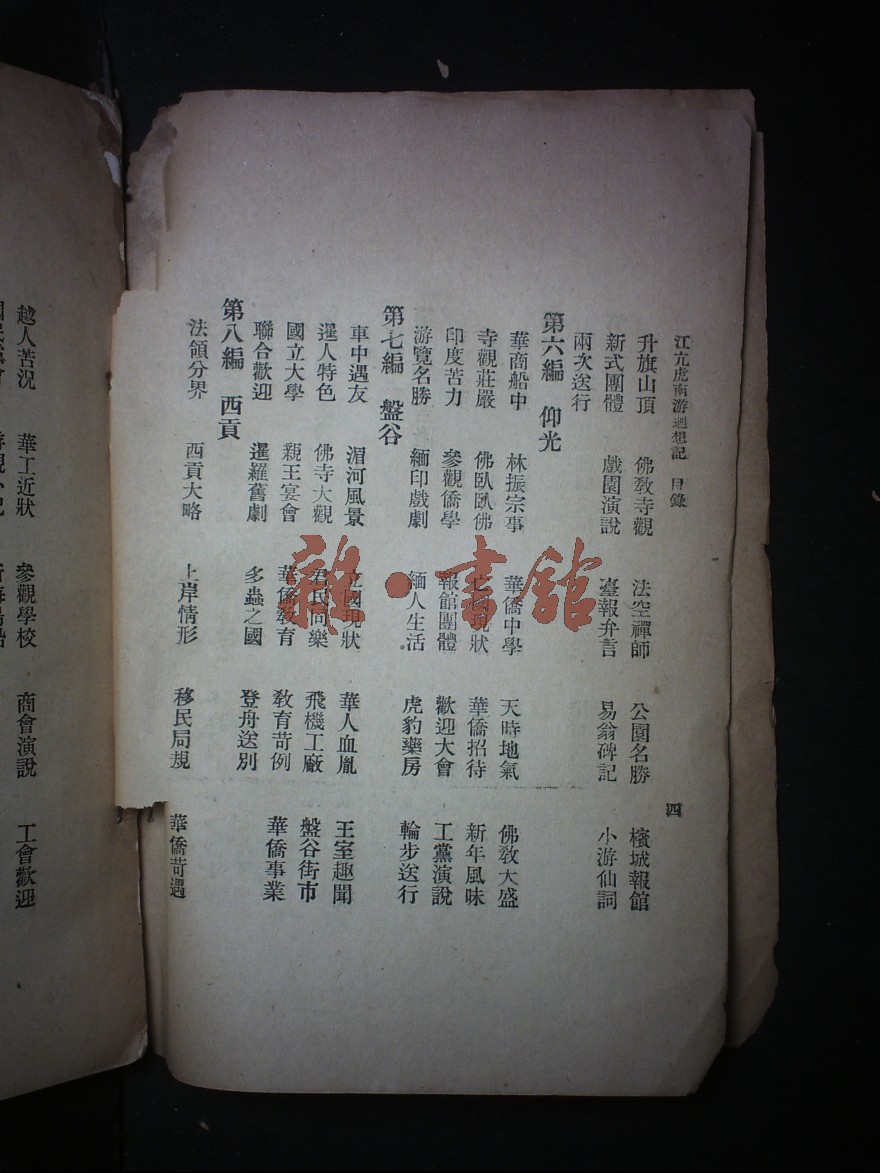 江亢虎南游迴想記 目錄 四
升旗山頂 佛敎寺觀 法空禪師 公園名勝 檳城報館
新式團體 戲園演說 臺報弁言 易翁碑記 小游仙詞
兩次送行
第六編 仰光
華商船中 林振宗事 華僑中學 天時地氣 佛敎大盛
寺觀莊嚴 佛臥臥佛 亡國現狀 華僑招待 新年風味
印度苦力 參觀僑學 報館團體 歡迎大會 工黨演說
游覽名勝 緬印戲劇 緬人生活 虎豹藥房 輪步送行
第七編 盤谷
車中遇友 湄河風景 立國現狀 華人血胤 王室趣聞
暹人特色 佛寺大觀 君民同樂 飛機工廠 盤谷街市
國立大學 親王宴會 華僑敎育 敎育苛例 華僑事業
聯合歡迎 暹羅舊劇 多蟲之國 登舟送別
第八編 西貢
法領分界 西貢大略 上岸情形 移民局規 華僑苛遇
越人苦況 華工近狀 參觀學校 商會演說 工會歡迎
雜·書館